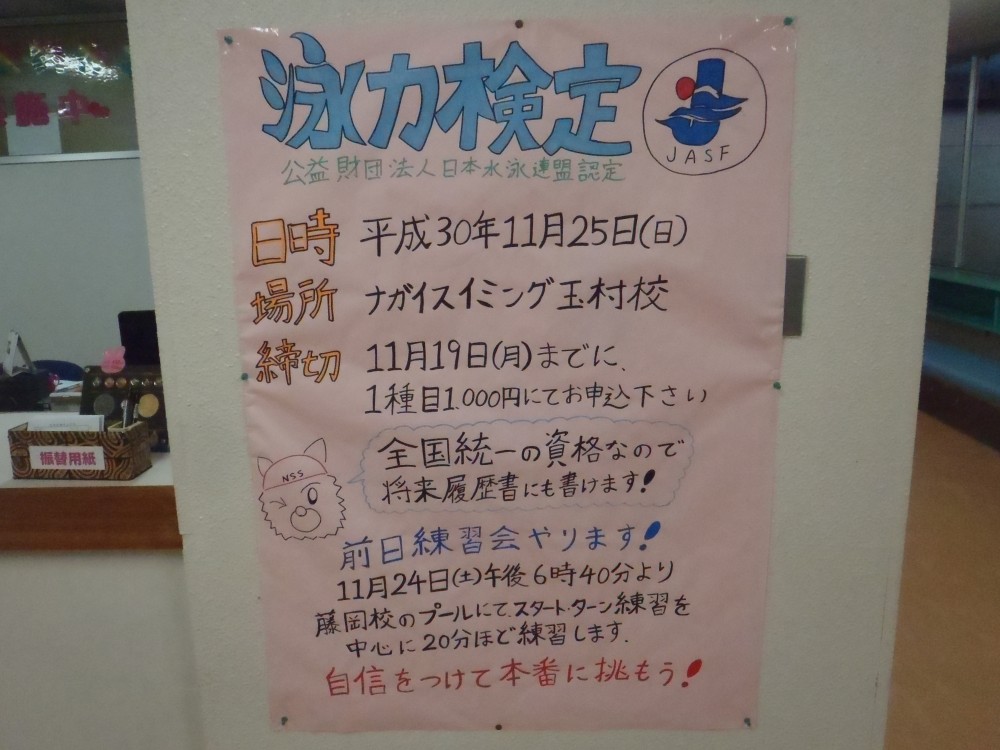 泳力検定
JASF
公益財団法人日本水泳連盟認定
日時 平成30年11月25日(日)
場所 ナガイスイミング玉村校
締切 11月19日(月)までに、
1種目1.000円にてお申込下さい
NSS
全国統一の資格なので
将来履歴書にも書けます!
前日練習会やります!
11月24日(土)午後6時40分より
藤岡校のプールにて、スタート・ターン練習を
中心に20分ほど練習します.
自信をつけて本番に挑もう!
振替用紙